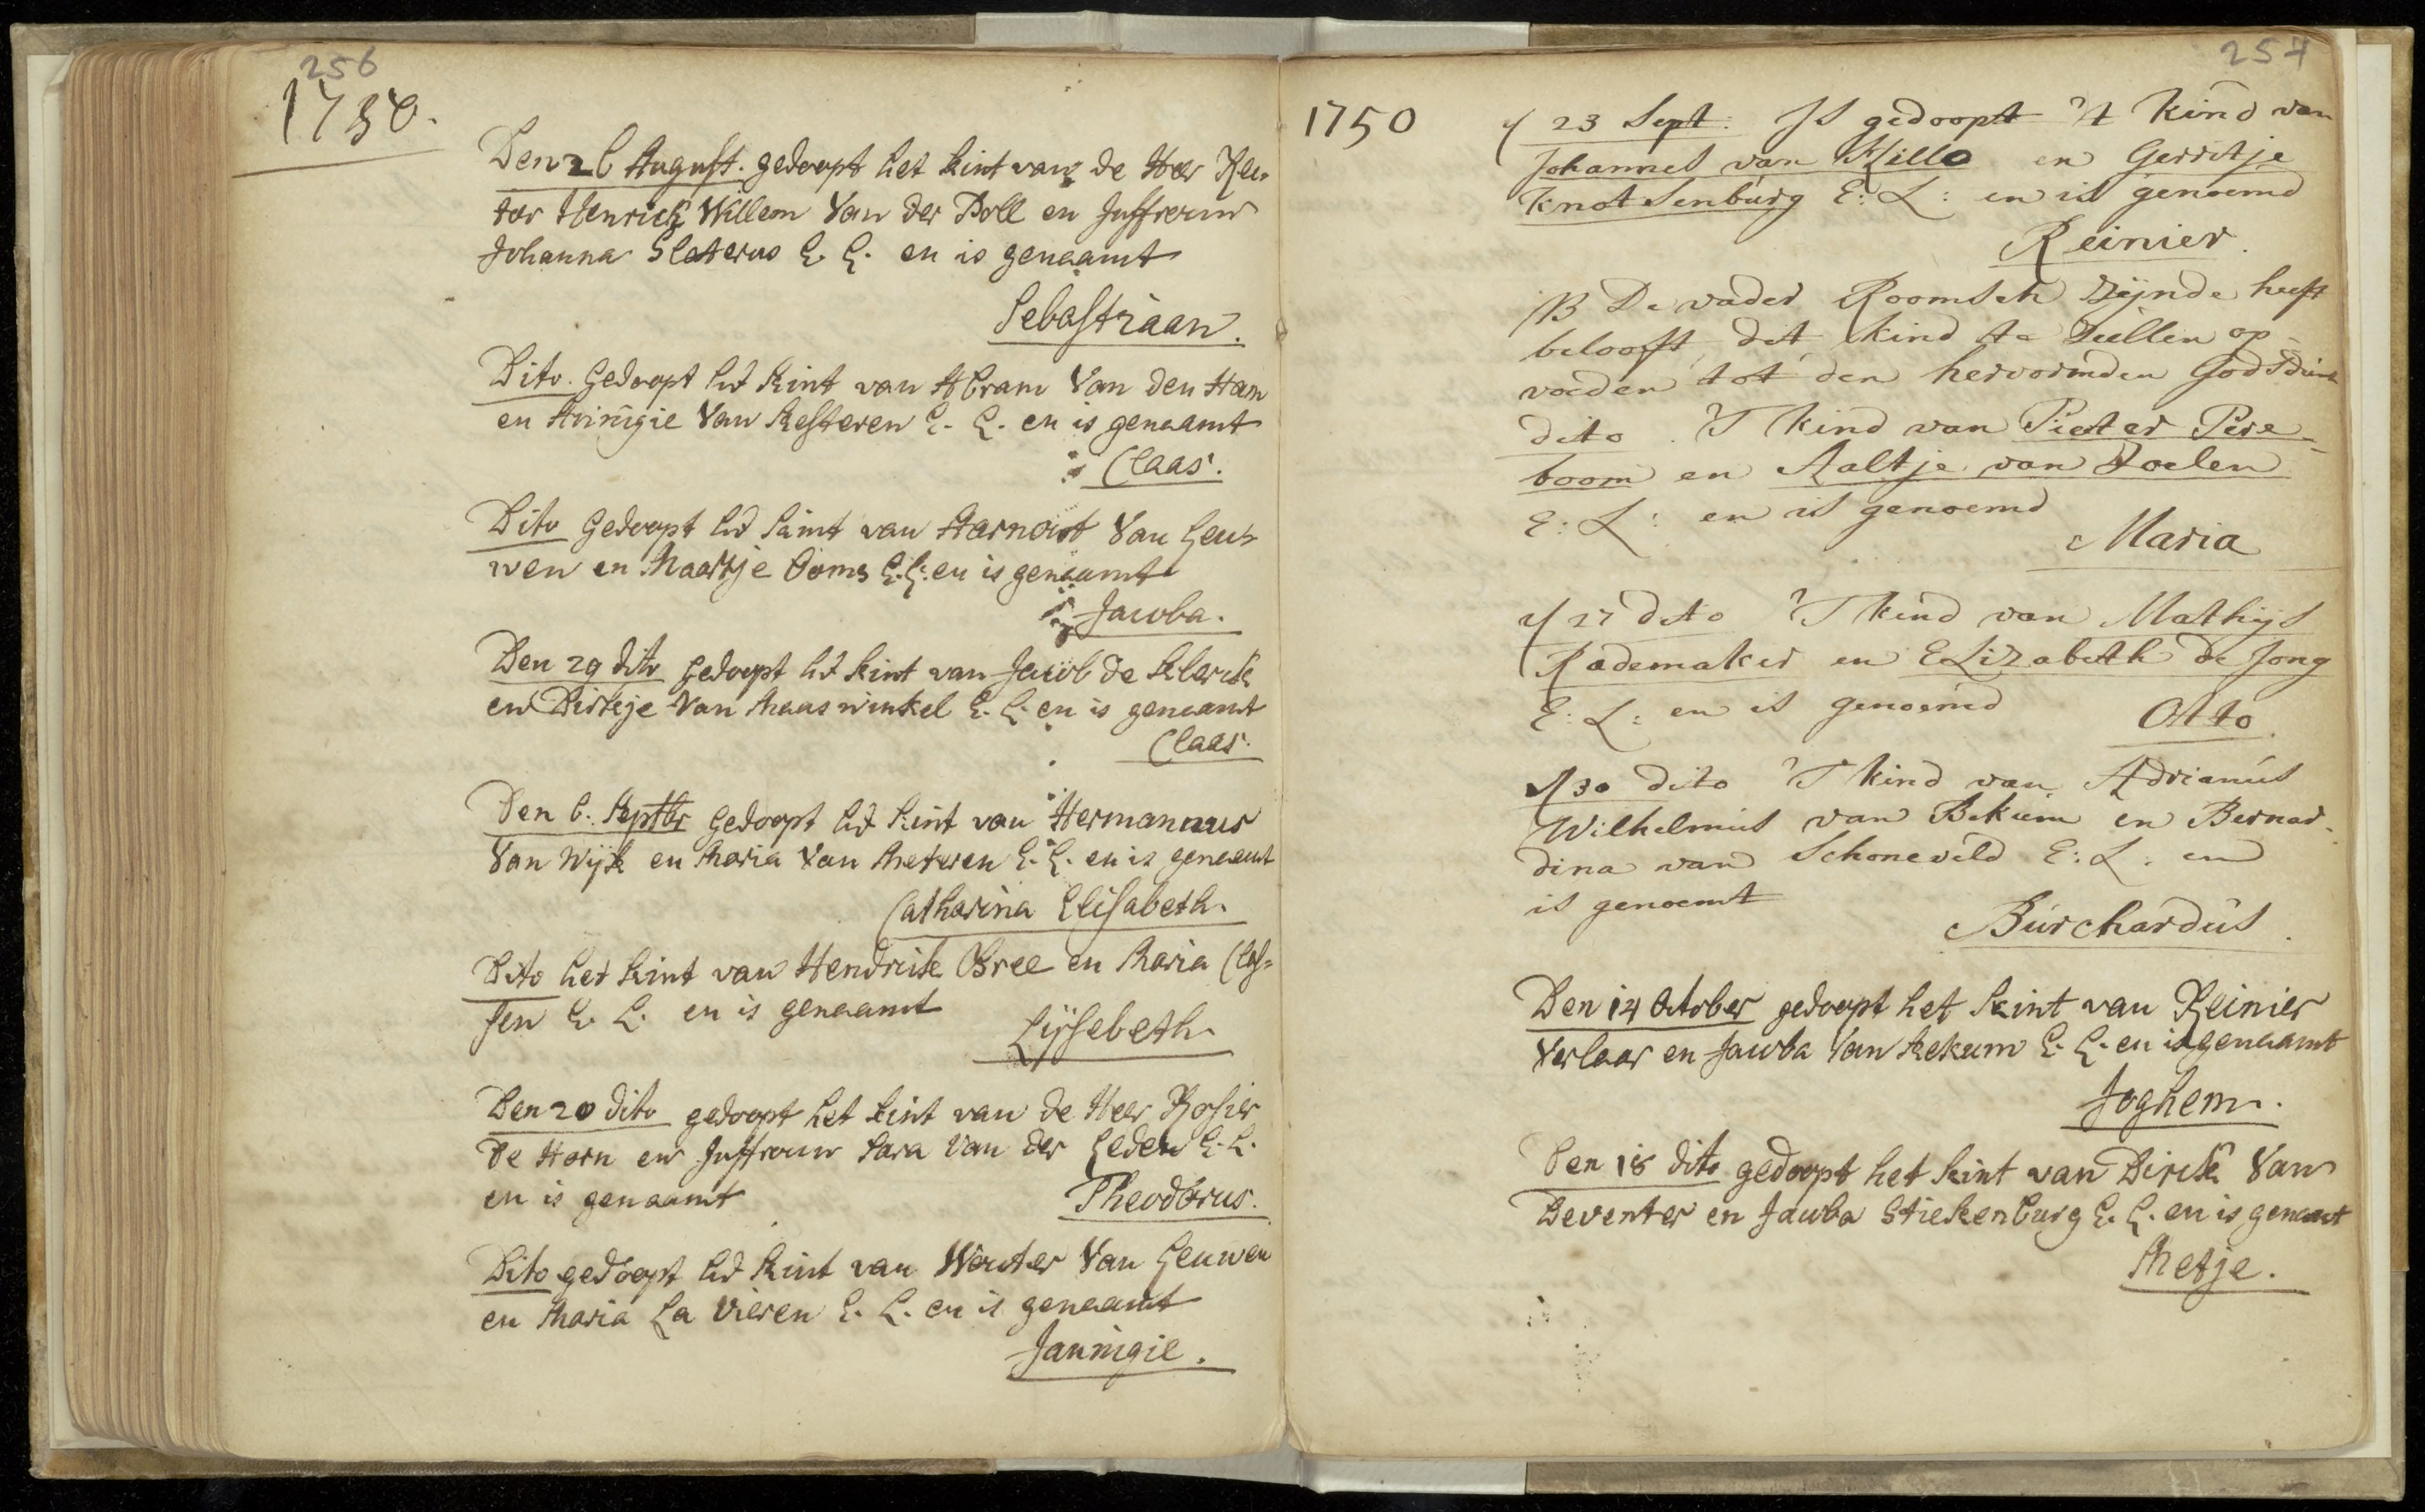 256
1750.
Den 26 August. gedoopt het kint van de Heer Rec-
tor Henrick Willem Van der Poll en Juffrouw
Johanna Sleterus E. L. en is genaamt
Sebastiaan.
Dito. Gedoopt het kint van Abram Van den Ham
en Anningie Van Kesteren E. L. en is genaamt
Claas.
Dito Gedoopt het kint van Aarnout Van Leu-
wen en Maartje Ooms E. L. en is genaamt
Jacoba.
Den 29 dito gedoopt het kint van Jacob de Klerck
en Dirkje Van Maaswinkel E. L. en is genaamt
Claas.
Den 6. Septbr Gedoopt het kint van Hermannus
Van Wijk en Maria Van Meteren E. L. en is genaamt
Catharina Elisabeth.
Dito het kint van Hendrick Bree en Maria Clas=
sen E. L. en is genaamt
Lijsebeth
Den 20 dito gedoopt het kint van de Heer Rosier
De Horn en Juffrouw Sara Van der Leden E. L.
en is genaamt Theodorus.
Dito gedoopt het kint van Wouter Van Leuwen
en Maria La Vieren E. L. en is genaamt
Janningie.
257
1750
23 Sept. Is gedoopt 't Kind van
Johannes van Hillo en Gerritje
Knotsenburg E: L: en is genoemd
Reinier.
NB De vader Roomsch zijnde heeft
belooft dat kind te zullen op-
voeden tot den hervormden Godsdienst
dito. 'T kind van Pieter Pere-
boom en Aaltje van Doelen
E: L: en is genoemd
Maria
27 dito 'T kind van Mathijs
Rademaker en Elizabeth de Jong
E: L: en is genoemd Otto.
30 dito 'T kind van Adrianus
Wilhelmus van Bekum en Bernar-
dina van Schoneveld E: L: en
is genoemt
Burchardus.
Den 14 October gedoopt het kint van Reinier
Verlaar en Jacoba Van Kekum E. L. en is genaamt
Joghem.
Den 18 dito gedoopt het kint van Dirck Van
Deventer en Jacoba Stiekenburg E. L. en is genaamt
Metje.